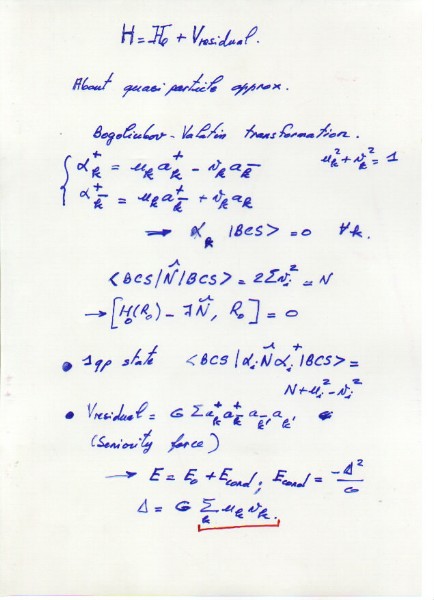 H = H₀ + Vresidual.
About quasi particle approx.
Bogoliubov-Valatin transformation.
α⁺ₖ = uₖ a⁺ₖ - vₖ aₖ̄    uₖ² + vₖ² = 1
α⁺ₖ̄ = uₖ a⁺ₖ̄ + vₖ aₖ
→ αₖ |BCS> = 0 ∀k.
<BCS|N̂|BCS> = 2Σvᵢ² = N
→ [H₀(R₀) - λN̂, R₀] = 0
• 1qp state <BCS|αᵢ N̂ αᵢ⁺|BCS> =
N + uᵢ² - vᵢ²
• Vresidual = G Σ a⁺ₖ a⁺ₖ̄ aₖ̄' aₖ'
(Seniority force)
→ E = E₀ + Econd; Econd = -Δ²/G
Δ = G Σₖ uₖ vₖ.